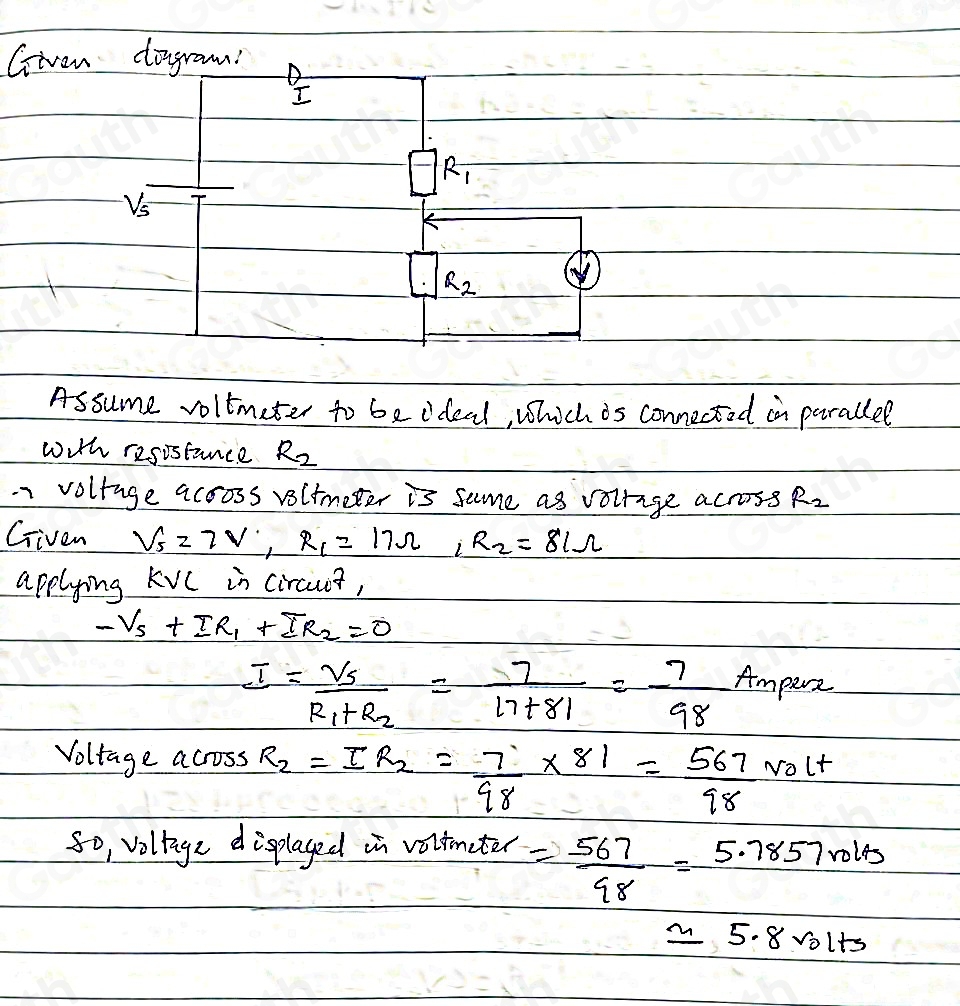 Given diagram:
I
R1
Vs
R2
V
Assume voltmeter to be ideal, which is connected in parallel
with resistance R2
∴ voltage across voltmeter is same as voltage across R2
Given Vs = 7V, R1 = 17Ω, R2 = 81Ω
applying KVL in circuit,
-Vs + IR1 + IR2 = 0
I = Vs / (R1+R2) = 7 / (17+81) = 7/98 Ampere
Voltage across R2 = IR2 = 7/98 × 81 = 567/98 volt
So, voltage displayed in voltmeter = 567/98 = 5.7857 volts
≃ 5.8 volts
Gauth